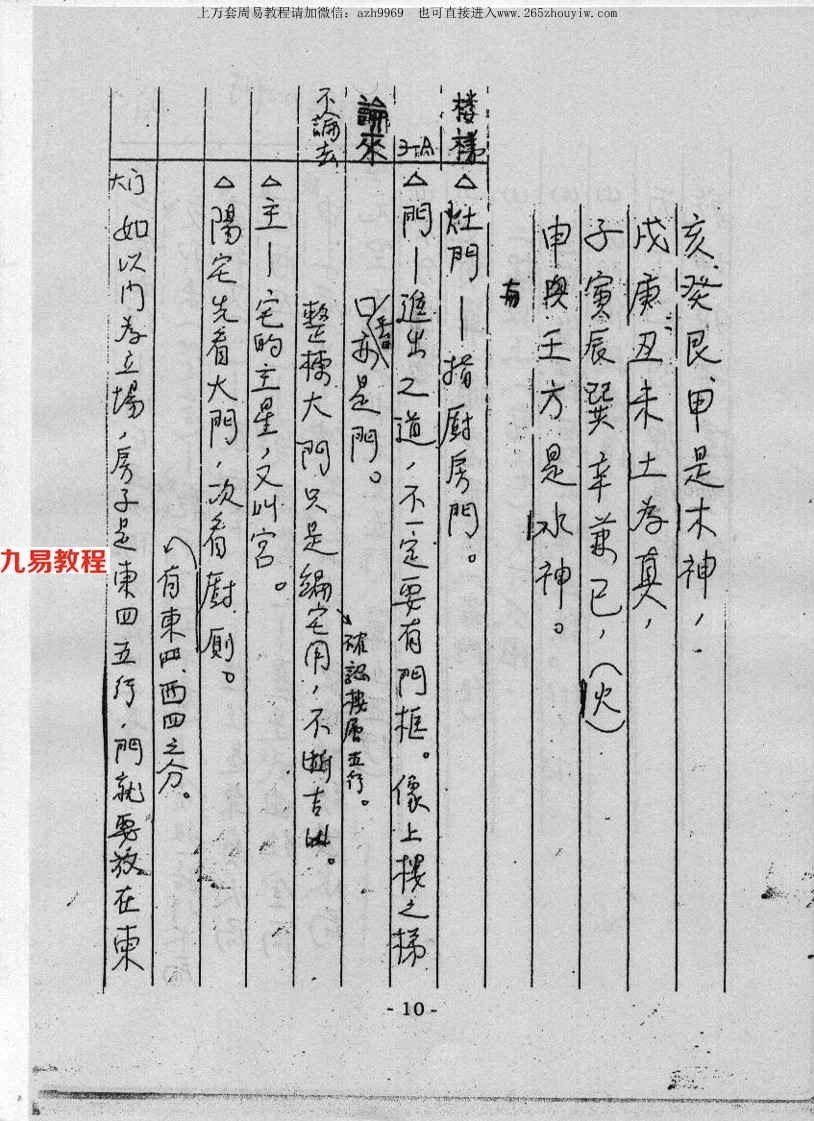 上万套周易教程请加微信：azh9969 也可直接进入www.265zhouyiw.com
亥癸艮甲是木神，
戌庚丑未土為真，
子寅辰巽辛兼巳，（火）
申與壬方是水神。
有
楼梯
△灶門—指廚房門。
△門—進出之道，不一定要有門框。像上樓之梯
論來
口亦是門。
不論去
整棟大門只是編宅用，不斷吉凶。
確認樓層五行。
△主—宅的主星，又叫宮。
△陽宅先看大門，次看廚廁。
有東四、西四之分。
大门
如以门為立場，房子是東四五行，門就要放在東
九易教程
- 10 -